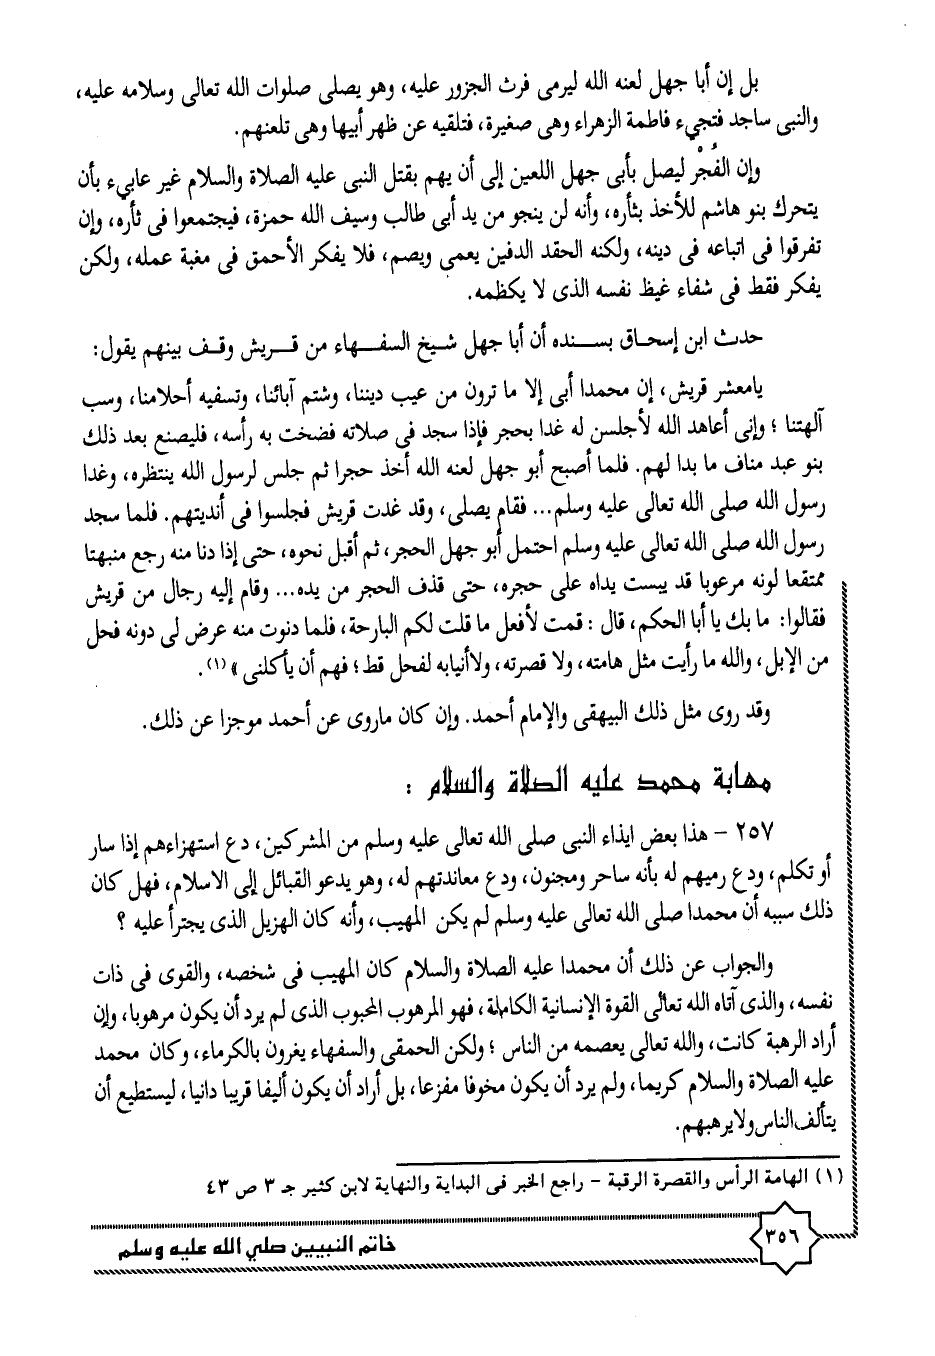 بل إن أبا جهل لعنه الله ليرمى فرث الجزور عليه، وهو يصلى صلوات الله تعالى وسلامه عليه،
والنبى ساجد فتجيء فاطمة الزهراء وهى صغيرة، فتلقيه عن ظهر أبيها وهى تلعنهم.
وإن الفُجْر ليصل بأبى جهل اللعين إلى أن يهم بقتل النبى عليه الصلاة والسلام غير عابيء بأن
يتحرك بنو هاشم للأخذ بثأره، وأنه لن ينجو من يد أبى طالب وسيف الله حمزة، فيجتمعوا فى ثأره، وإن
تفرقوا فى اتباعه فى دينه، ولكنه الحقد الدفين يعمى ويصم، فلا يفكر الأحمق فى مغبة عمله، ولكن
يفكر فقط فى شفاء غيظ نفسه الذى لا يكظمه.
حدث ابن إسحاق بسنده أن أبا جهل شيخ السفهاء من قريش وقف بينهم يقول:
يامعشر قريش، إن محمدا أبى إلا ما ترون من عيب ديننا، وشتم آبائنا، وتسفيه أحلامنا، وسب
آلهتنا ؛ وإنى أعاهد الله لأجلسن له غدا بحجر فإذا سجد فى صلاته فضخت به رأسه، فليصنع بعد ذلك
بنو عبد مناف ما بدا لهم. فلما أصبح أبو جهل لعنه الله أخذ حجرا ثم جلس لرسول الله ينتظره، وغدا
رسول الله صلى الله تعالى عليه وسلم... فقام يصلى، وقد غدت قريش فجلسوا فى أنديتهم. فلما سجد
رسول الله صلى الله تعالى عليه وسلم احتمل أبو جهل الحجر، ثم أقبل نحوه، حتى إذا دنا منه رجع منبهتا
ممتقعا لونه مرعوبا قد يبست يداه على حجره، حتى قذف الحجر من يده... وقام إليه رجال من قريش
فقالوا: ما بك يا أبا الحكم، قال : قمت لأفعل ما قلت لكم البارحة، فلما دنوت منه عرض لى دونه فحل
من الإبل، والله ما رأيت مثل هامته، ولا قصرته، ولاأنيابه لفحل قط ؛ فهم أن يأكلنى » (١).
وقد روى مثل ذلك البيهقى والإمام أحمد. وإن كان ماروى عن أحمد موجزا عن ذلك.
مهابة محمد عليه الصلاة والسلام :
٢٥٧ – هذا بعض ايذاء النبى صلى الله تعالى عليه وسلم من المشركين، دع استهزاءهم إذا سار
أو تكلم، ودع رميهم له بأنه ساحر ومجنون، ودع معاندتهم له، وهو يدعو القبائل إلى الاسلام، فهل كان
ذلك سببه أن محمدا صلى الله تعالى عليه وسلم لم يكن المهيب، وأنه كان الهزيل الذى يجترأ عليه ؟
والجواب عن ذلك أن محمدا عليه الصلاة والسلام كان المهيب فى شخصه، والقوى فى ذات
نفسه، والذى آتاه الله تعالى القوة الإنسانية الكاملة، فهو المرهوب المحبوب الذى لم يرد أن يكون مرهوبا، وإن
أراد الرهبة كانت، والله تعالى يعصمه من الناس ؛ ولكن الحمقى والسفهاء يغرون بالكرماء، وكان محمد
عليه الصلاة والسلام كريما، ولم يرد أن يكون مخوفا مفزعا، بل أراد أن يكون أليفا قريبا دانيا، ليستطيع أن
يتألف الناس ولا يرهبهم.
(١) الهامة الرأس والقصرة الرقبة – راجع الخبر فى البداية والنهاية لابن كثير جـ ٣ ص ٤٣
٣٥٦
خاتم النبيين صلي الله عليه وسلم